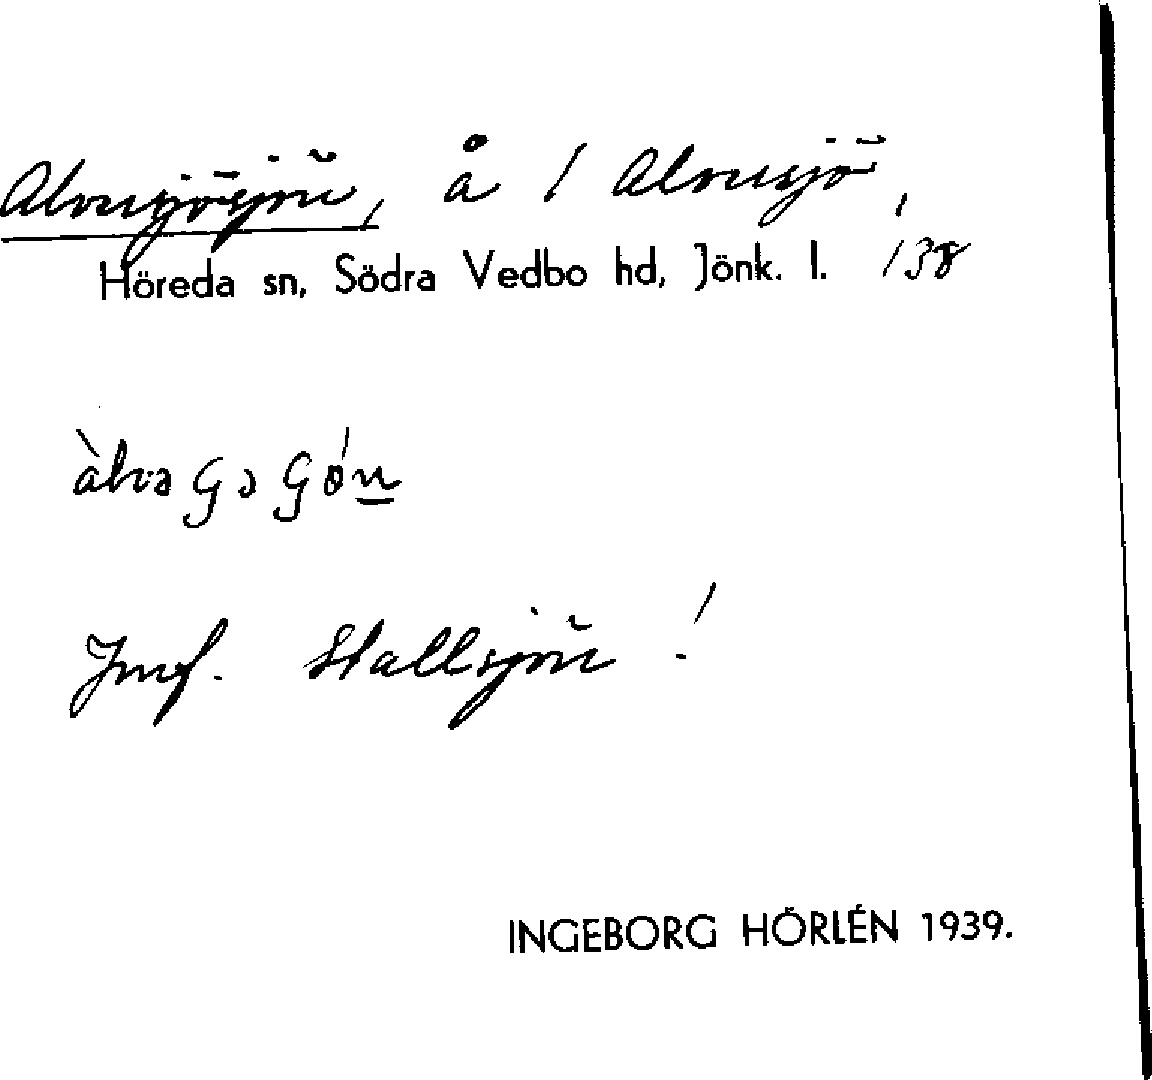 Alvesjösjön, å / Alvesjö,
Höreda sn, Södra Vedbo hd, Jönk. l. 138
Jmf. Stallsjön !
INGEBORG HÖRLÉN 1939.